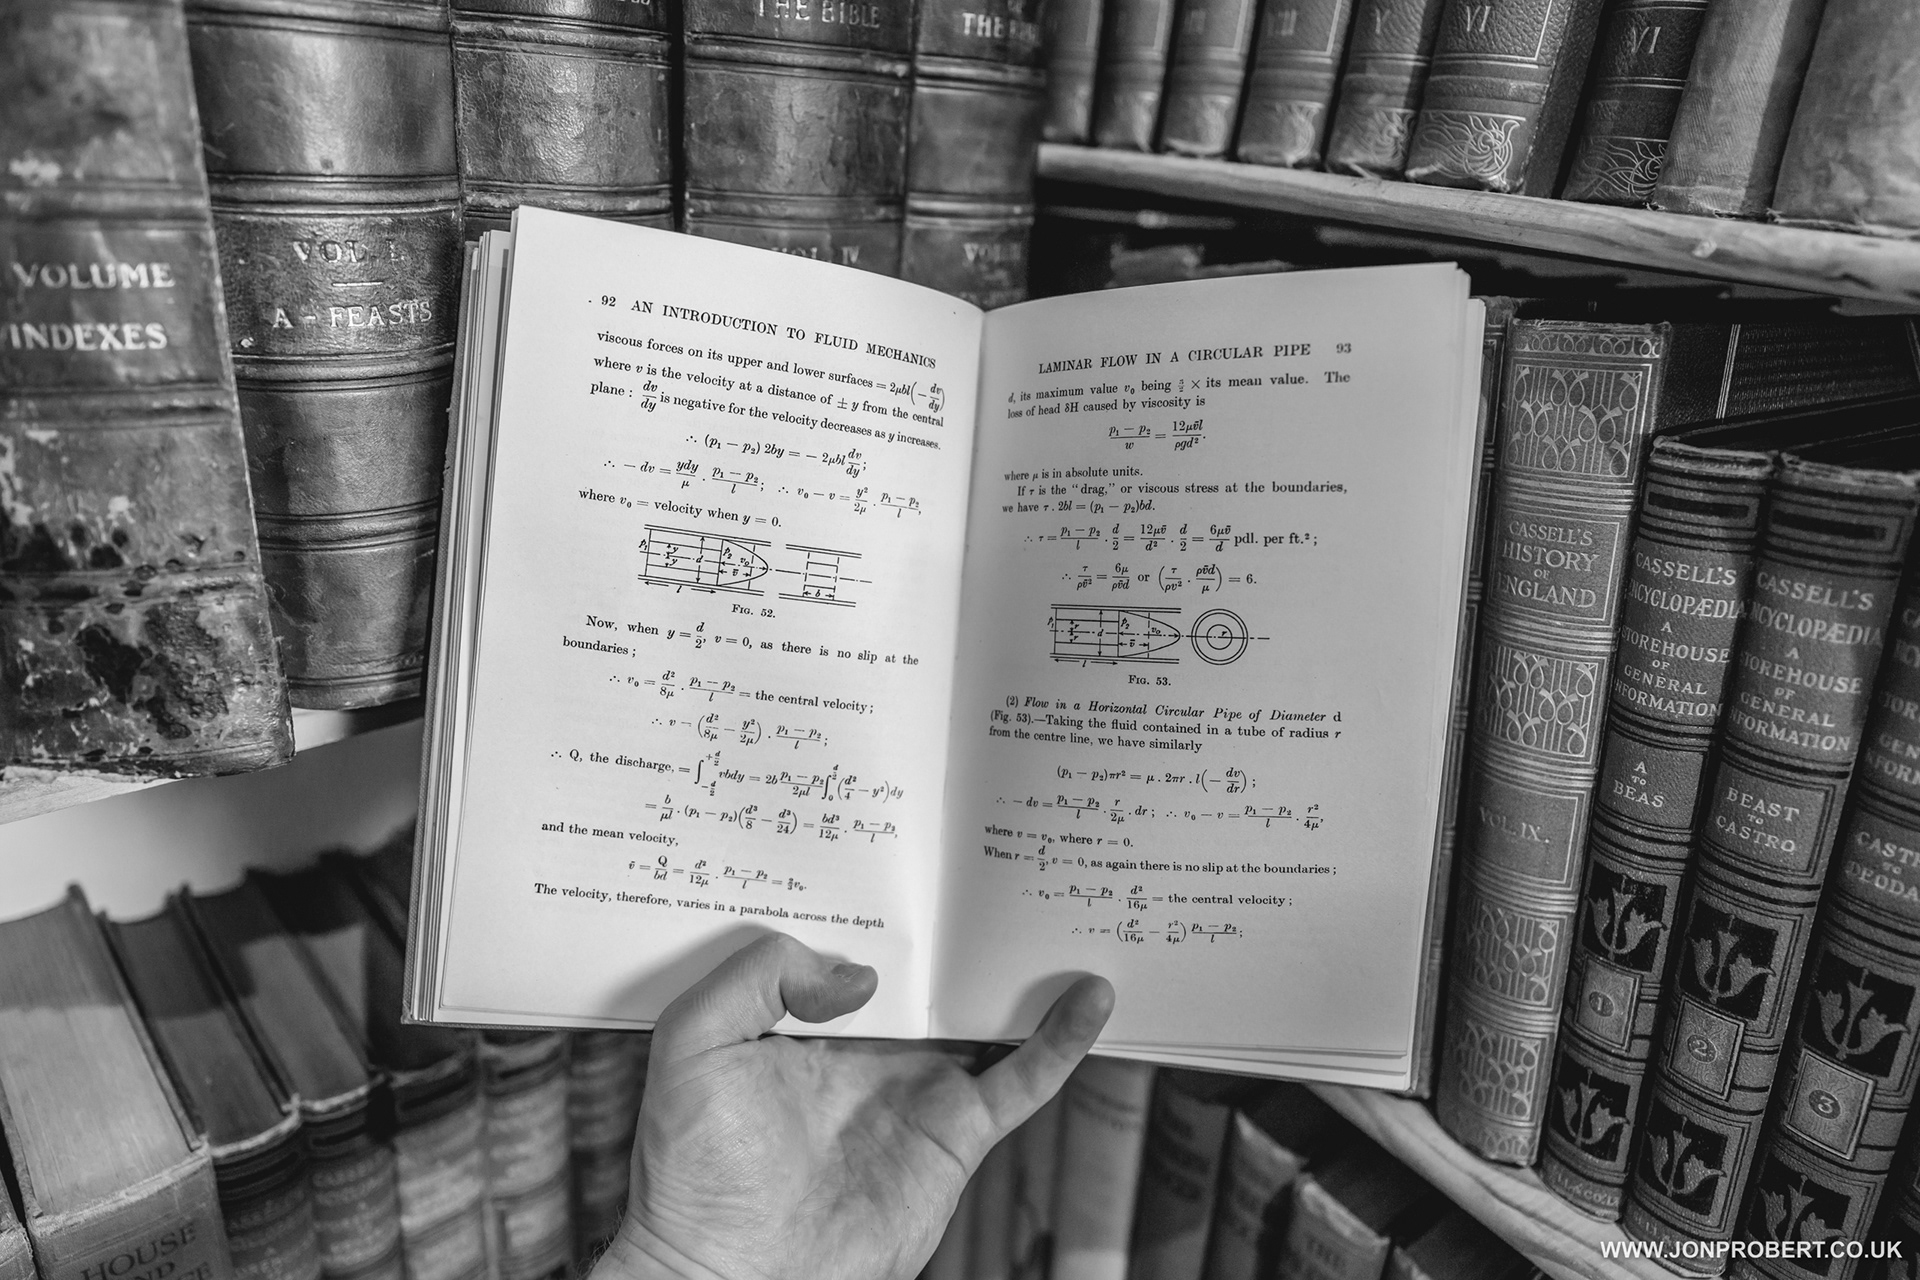 THE BIBLE
VOLUME
INDEXES
VOL. I.
A – FEASTS
VOL. IV
VI
VI
92 AN INTRODUCTION TO FLUID MECHANICS
viscous forces on its upper and lower surfaces = 2μbl(− dv/dy)
where v is the velocity at a distance of ± y from the central
plane : dv/dy is negative for the velocity decreases as y increases.
∴ (p₁ − p₂) 2by = − 2μbl dv/dy ;
∴ − dv = ydy/μ . (p₁ − p₂)/l ; ∴ v₀ − v = y²/2μ . (p₁ − p₂)/l,
where v₀ = velocity when y = 0.
p₁ y y d p₂ v₀ v̄ l b
FIG. 52.
Now, when y = d/2, v = 0, as there is no slip at the
boundaries ;
∴ v₀ = d²/8μ . (p₁ − p₂)/l = the central velocity ;
∴ v = (d²/8μ − y²/2μ) . (p₁ − p₂)/l ;
∴ Q, the discharge, = ∫₋d/2^+d/2 vbdy = 2b (p₁ − p₂)/2μl ∫₀^d/2 (d²/4 − y²) dy
= b/μl . (p₁ − p₂)(d³/8 − d³/24) = bd³/12μ . (p₁ − p₂)/l,
and the mean velocity,
v̄ = Q/bd = d²/12μ . (p₁ − p₂)/l = ⅔v₀.
The velocity, therefore, varies in a parabola across the depth
LAMINAR FLOW IN A CIRCULAR PIPE 93
d, its maximum value v₀ being 3/2 × its mean value. The
loss of head δH caused by viscosity is
(p₁ − p₂)/w = 12μv̄l/ρgd².
where μ is in absolute units.
If τ is the "drag," or viscous stress at the boundaries,
we have τ . 2bl = (p₁ − p₂)bd.
∴ τ = (p₁ − p₂)/l . d/2 = 12μv̄/d² . d/2 = 6μv̄/d pdl. per ft.² ;
∴ τ/ρv̄² = 6μ/ρv̄d or (τ/ρv² . ρv̄d/μ) = 6.
p₁ r r d p₂ v₀ v̄ l r
FIG. 53.
(2) Flow in a Horizontal Circular Pipe of Diameter d
(Fig. 53).—Taking the fluid contained in a tube of radius r
from the centre line, we have similarly
(p₁ − p₂)πr² = μ . 2πr . l(− dv/dr) ;
∴ − dv = (p₁ − p₂)/l . r/2μ . dr ; ∴ v₀ − v = (p₁ − p₂)/l . r²/4μ,
where v = v₀, where r = 0.
When r = d/2, v = 0, as again there is no slip at the boundaries ;
∴ v₀ = (p₁ − p₂)/l . d²/16μ = the central velocity ;
∴ v = (d²/16μ − r²/4μ) (p₁ − p₂)/l ;
CASSELL'S
HISTORY
OF
ENGLAND
VOL. IX.
CASSELL'S
ENCYCLOPÆDIA
A
STOREHOUSE
OF
GENERAL
INFORMATION
A
TO
BEAS
1
CASSELL'S
ENCYCLOPÆDIA
A
STOREHOUSE
OF
GENERAL
INFORMATION
BEAST
TO
CASTRO
2
3
HOUSE
WWW.JONPROBERT.CO.UK